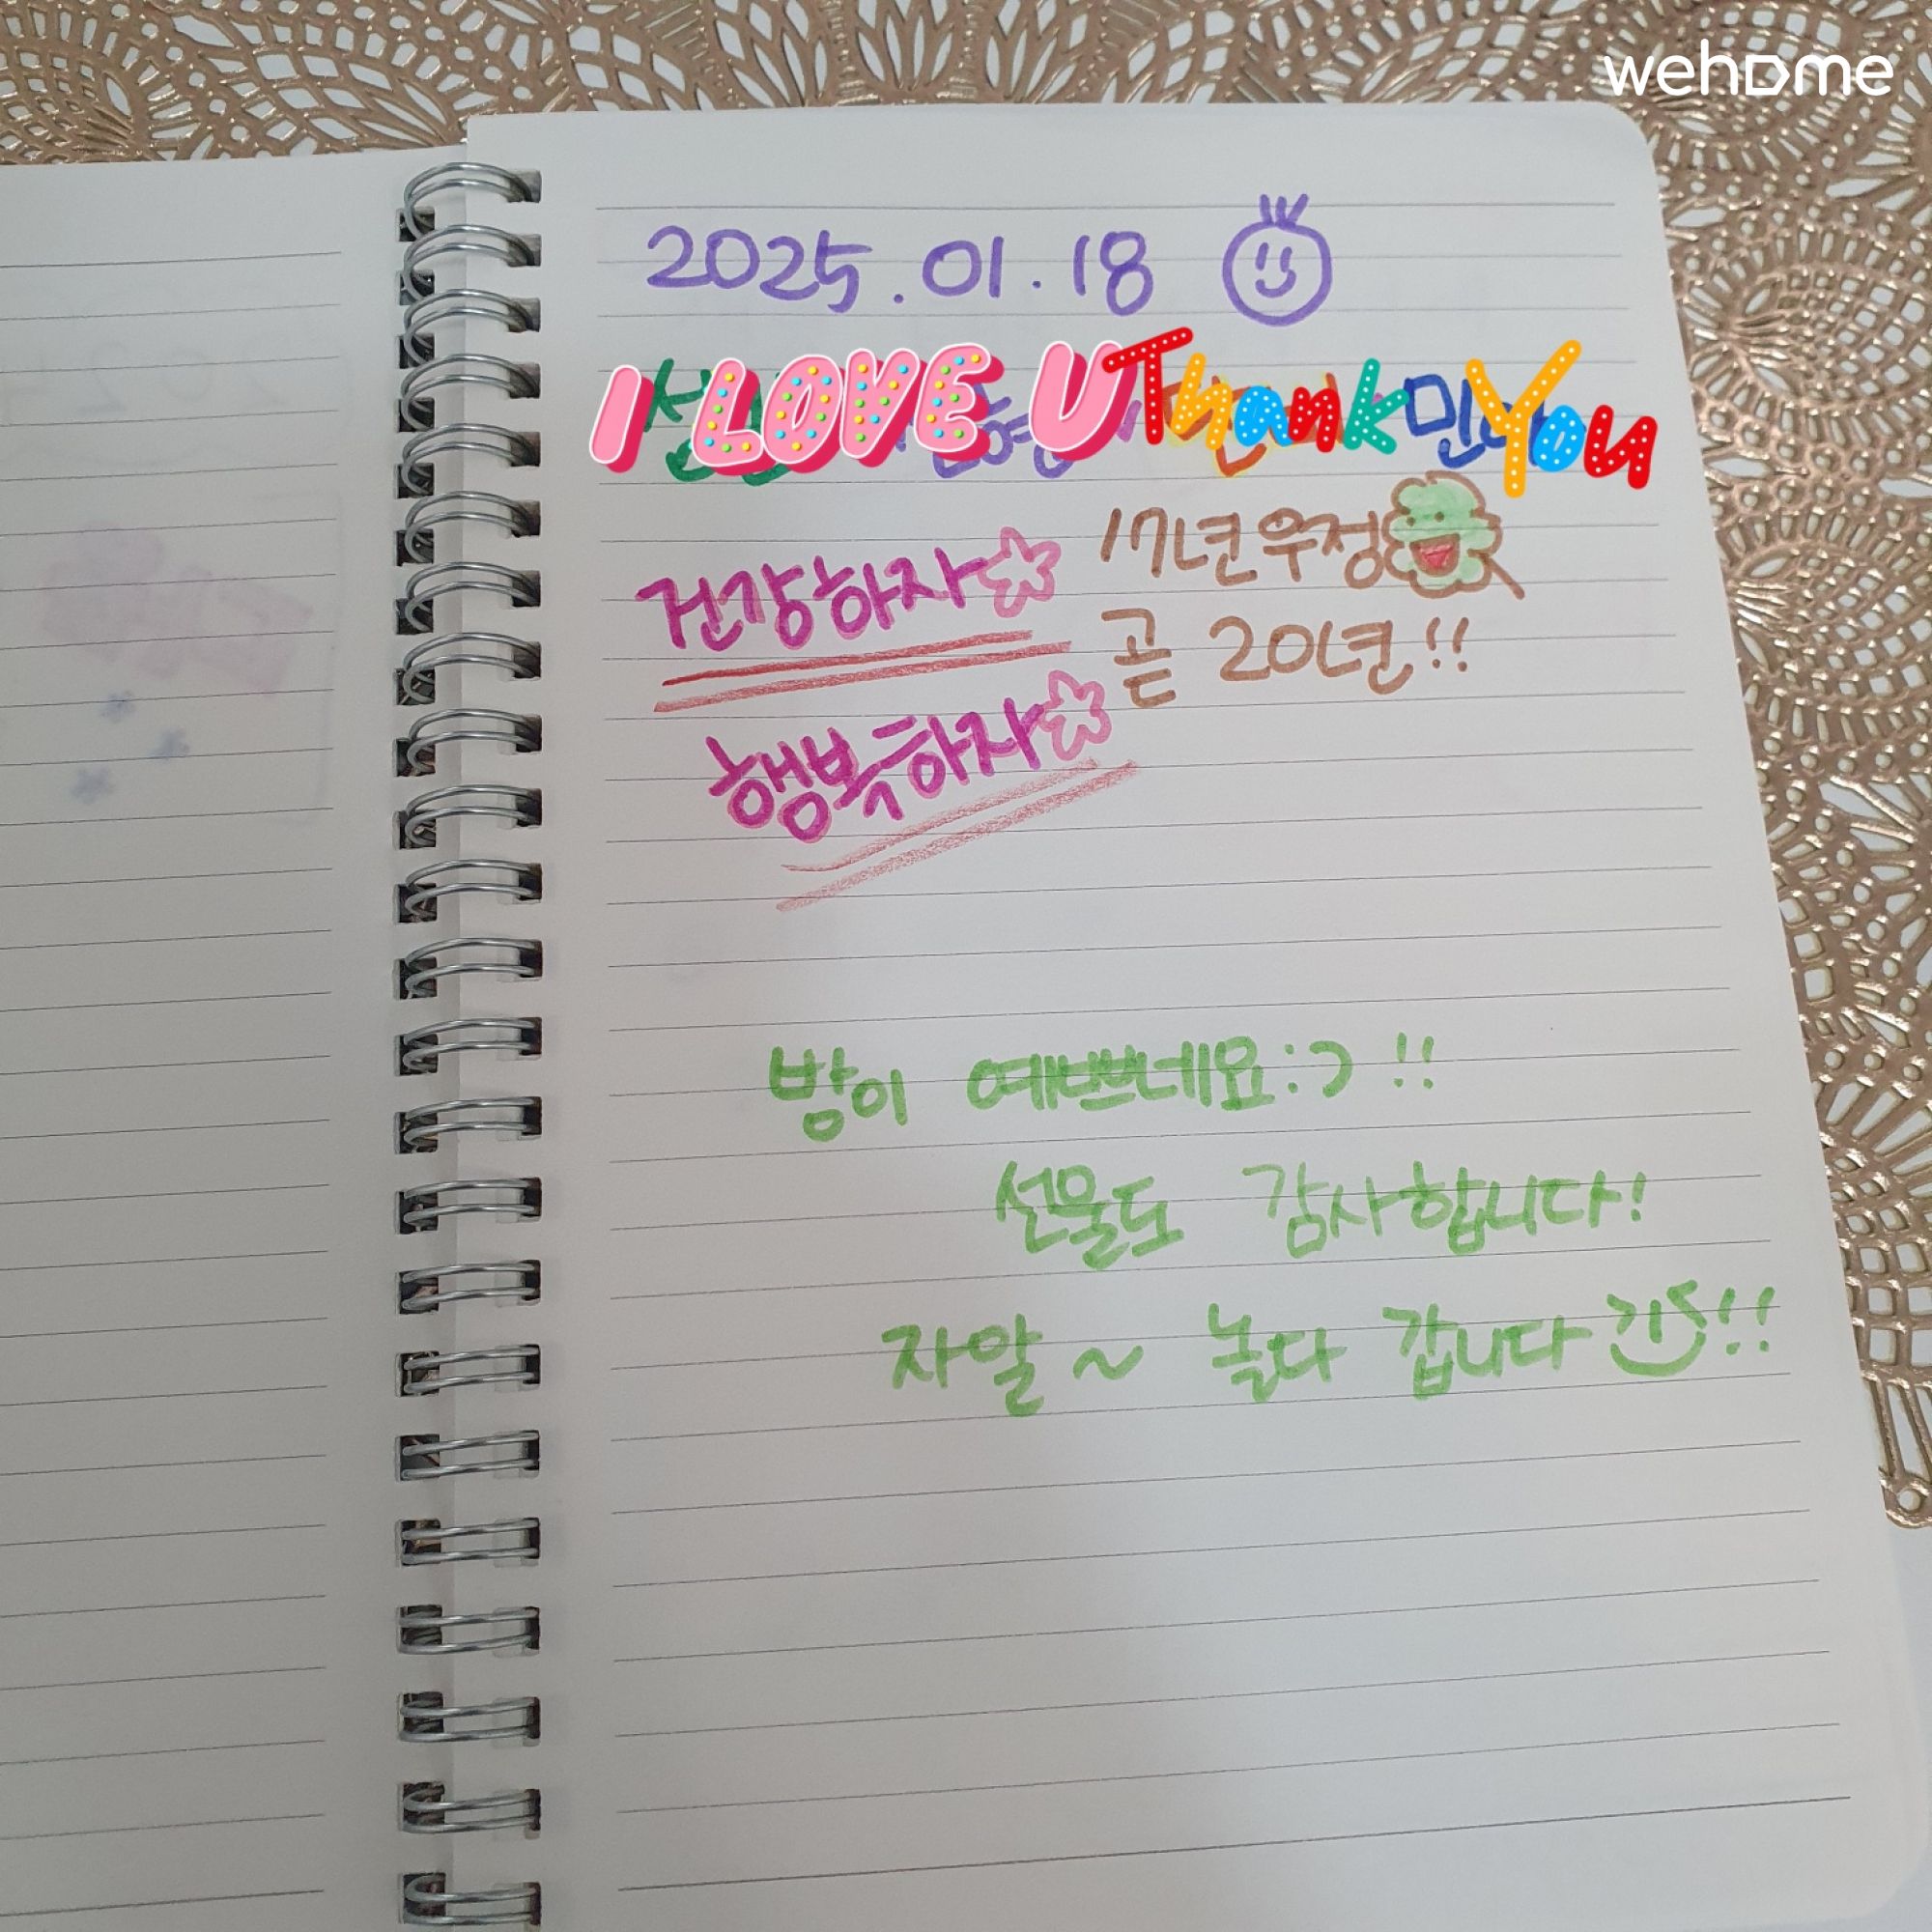 wehome
2025.01.18
I LOVE U Thank You
17년우정
건강하자☆
곧 20년!!
행복하자☆
방이 예쁘네요:) !!
선물도 감사합니다!
자알~ 놀다 갑니다!!